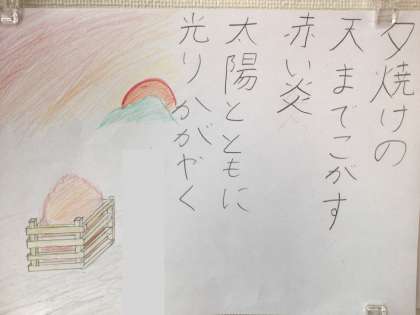 夕焼けの
天までこがす
赤い炎
太陽とともに
光りかがやく